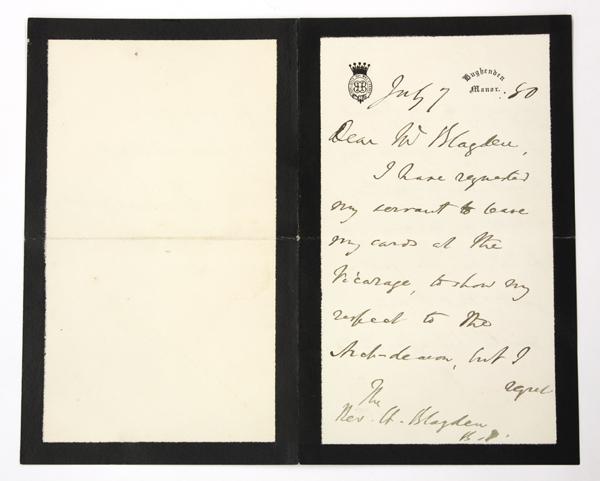 July 7 :80
Hughenden
Manor.
Dear Mr Blagden,
I have requested
my servant to leave
my cards at the
Vicarage, to show my
respect to the
Arch-deacon, but I
regret
The
Rev. H. Blagden